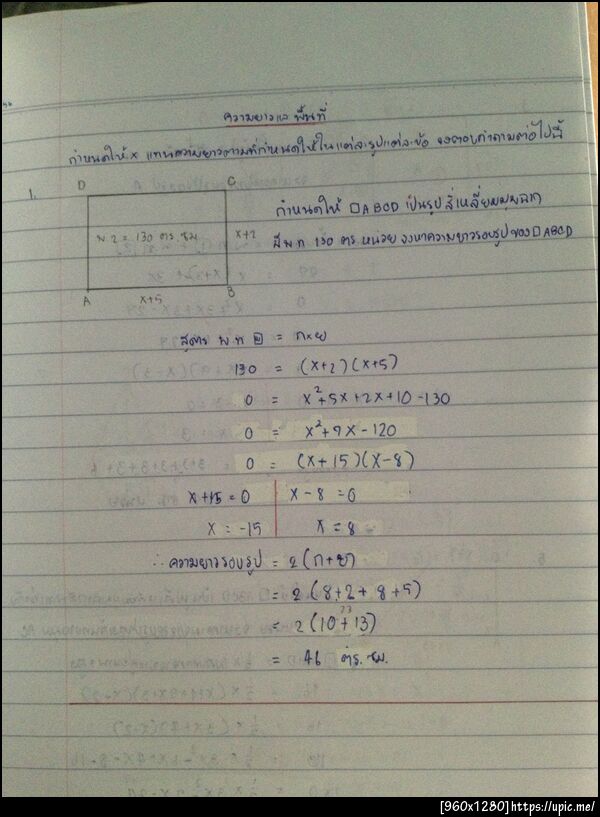 ความยาวและพื้นที่
กำหนดให้ x แทนความยาวตามที่กำหนดให้ในแต่ละรูปแต่ละข้อ จงตอบคำถามต่อไปนี้
1.
D C
พ.ท = 130 ตร.ซม
x+2
A B
x+5
กำหนดให้ □ABCD เป็นรูปสี่เหลี่ยมมุมฉาก
มีพ.ท 130 ตร.หน่วย จงหาความยาวรอบรูปของ□ABCD
สูตร พ.ท □ = ก×ย
130 = (x+2)(x+5)
0 = x²+5x+2x+10-130
0 = x²+7x-120
0 = (x+15)(x-8)
x+15=0 x-8=0
x=-15 x=8
∴ ความยาวรอบรูป = 2(ก+ย)
= 2(8+2+8+5)
23
= 2(10+13)
= 46 ตร.ซม.
[960x1280]https://upic.me/